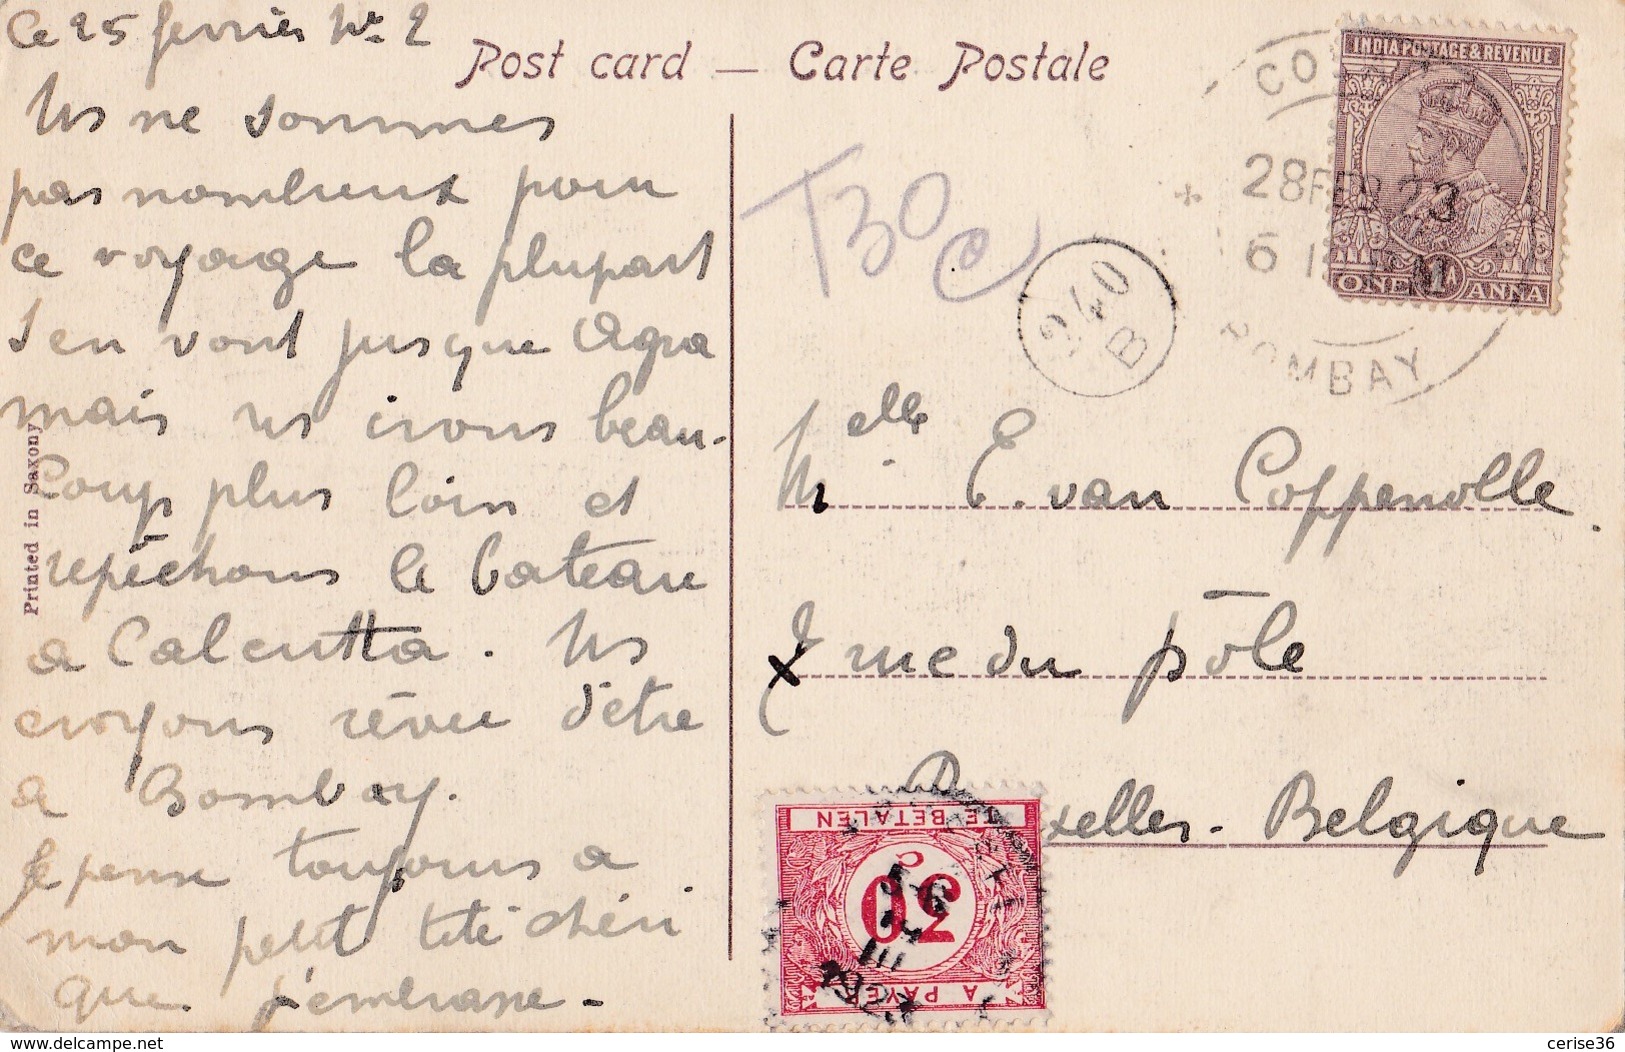 Ce 25 fevrier No 2
Post card — Carte Postale
Ns ne sommes
pas nombreux pour
ce voyage la plupart
s'en vont jusque Agra
mais ns irons beau-
coup plus loin et
repêchons le bateau
a Calcutta. Ns
croyons rêver d'être
a Bombay.
Je pense toujours a
mon petit tété chéri
que j'embrasse -
Printed in Saxony
INDIA POSTAGE & REVENUE
ONE 1A ANNA
28 FEB 23
BOMBAY
T30c
240
B
Melle E. van Coppenolle.
rue du pôle
xelles - Belgique
TE BETALEN
30
A PAYER
delcampe.net
cerise36